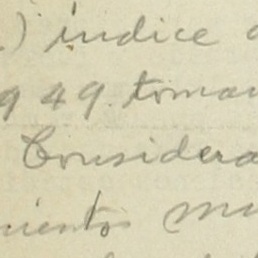 ) indice
949. toman
Considera
mientos mu